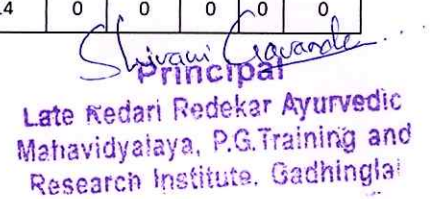 4 0 0 0 0 0
Shivani Gavande
Principal
Late Kedari Redekar Ayurvedic
Mahavidyalaya, P.G.Training and
Research Institute. Gadhingla